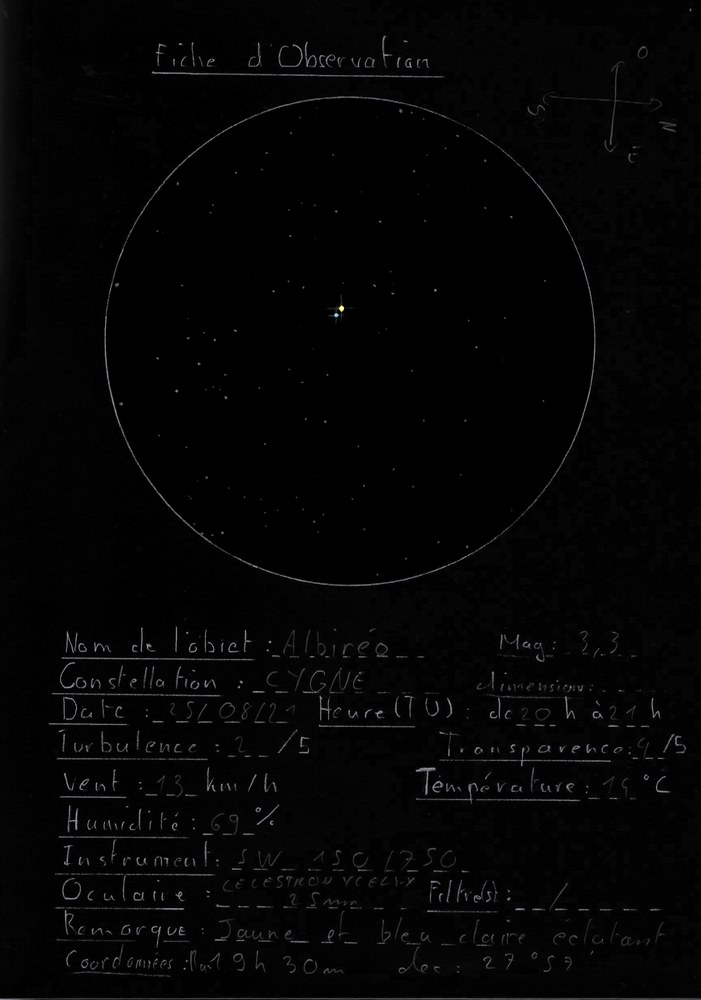 Fiche d'Observation
O
S
N
E
Nom de l'objet : Albiréo Mag : 3,3
Constellation : CYGNE dimension :
Date : 25/08/21 Heure (TU) : de 20 h à 21 h
Turbulence : 2 /5 Transparence : 4 /5
Vent : 13 km/h Température : °C
Humidité : 69 %
Instrument : SW 150/750
CELESTRON
Oculaire : 25mm Filtre(s) : /
Remarque : Jaune et bleu claire éclatant
Coordonnées : 19h 30m dec : 27°57'